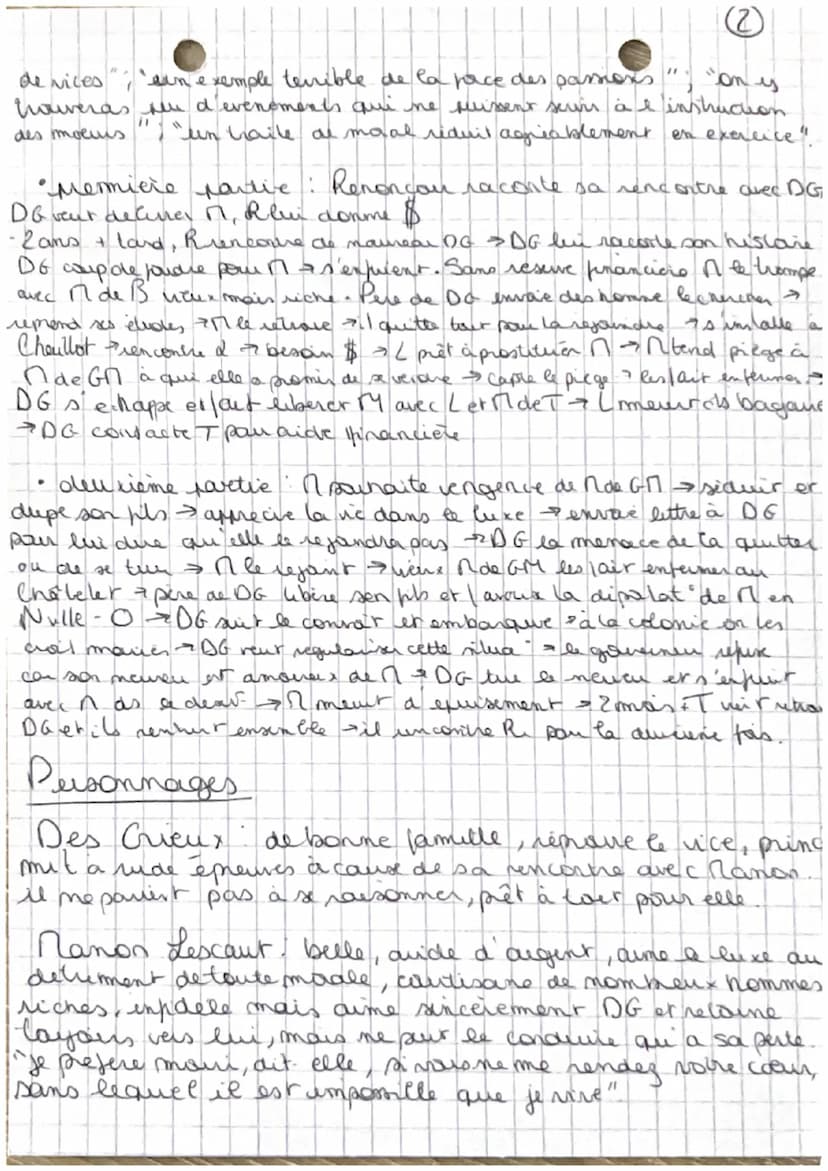 ②
de vices"; "un exemple terrible de la force des passions"; "on y
trouveras peu d'evenements qui ne puissent servir à l'instruction
des moeurs"; "un traité de moral réduit agréablement en exercice".
• première partie : Renonçou raconte sa rencontre avec DG
DG veut délivrer M, R lui donne $
-2ans + tard, R rencontre de nouveau DG → DG lui raconte son histoire
DG coup de foudre pour M → s'enfuient. Sans reserve financière M le trompe
avec M de B vieux mais riche. Père de DG envoie des homme le chercher →
reprend ses études → M le retrouve → il quitte tout pour la rejoindre → s'installe à
Chaillot → rencontre L → besoin $ → L prêt à prostituer M → M tend piège à
M de GM à qui elle a promis de se vendre → capte le piège → les fait enfermer →
DG s'échappe et faut libérer M avec L et M de T → L meurt ds bagarre
→ DG contacte T pour aide financière
• deuxième partie : M souhaite vengence de M de GM → séduir et
dupe son fils → apprécie la vie dans le luxe → envoie lettre à DG
pour lui dire qu'elle le rejoindra pas → DG la menace de la quitter
ou de se tuer → M le rejoint → vieux M de GM les fait enfermer au
Châtelet → père de DG libère son fils et favorix la déportat° de M en
Nvlle-O → DG suit le convoit et embarque → à la colonie on les
croit mariés → DG veut regulariser cette situa° → le gouverneur refuse
car son neveu est amoureux de M → DG tue le neveu et s'enfuit
avec M ds le désert → M meurt d'épuisement → 2 mois + T vient
DG et ils rentrent ensemble → il rencontre R pour la deuxième fois.
Personnages
Des Grieux : de bonne famille, réprouve le vice, princ
mit à rude épreuves à cause de sa rencontre avec Manon.
il ne parvient pas à se raisonner, prêt à tout pour elle.
Manon Lescaut : belle, avide d'argent, aime le luxe au
detriment de toute morale, courtisane de nombreux hommes
riches, infidèle mais aime sincèrement DG et retourne
toujours vers lui, mais ne peut le conduire qu'a sa perte.
"je préfère mourir, dit-elle, si vous ne me rendez votre cœur,
sans lequel il est impossible que je vive"